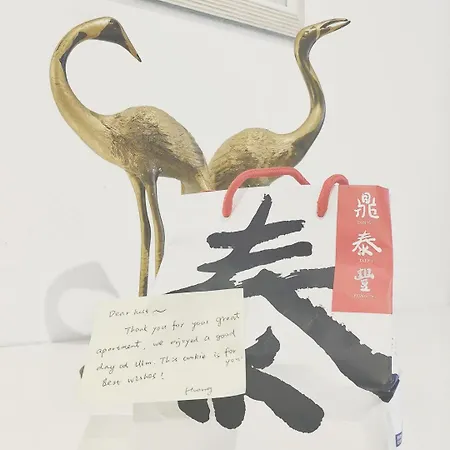 泰
鼎
泰
豐
Dear host ~
Thank you for your great
apartment, we enjoyed a good
day at Ulm. This cookie is for
you
Best wishes!